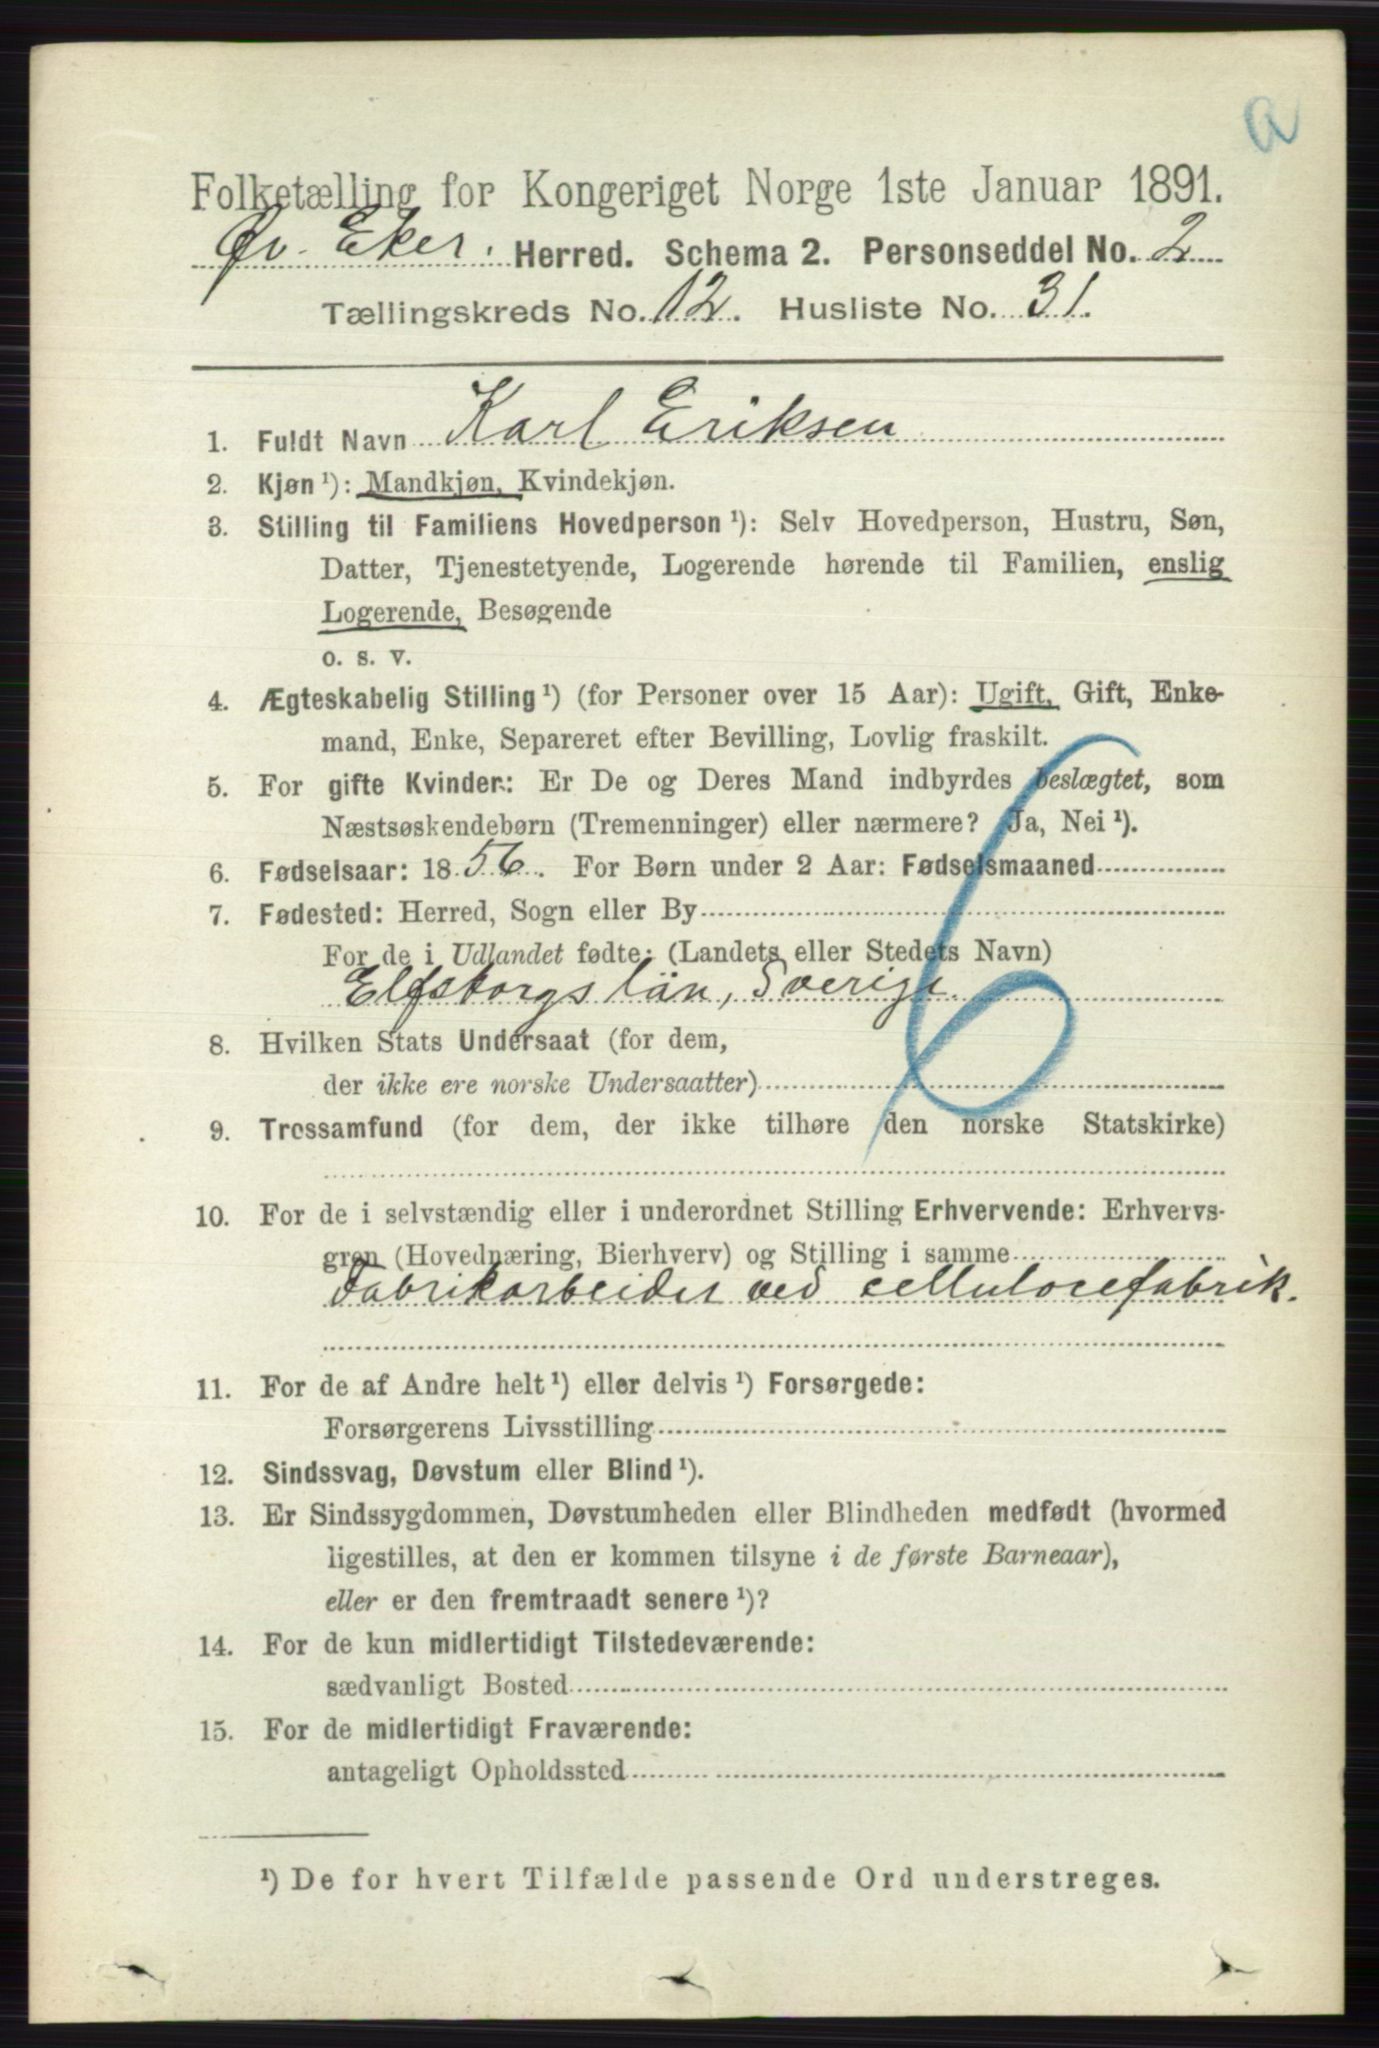 a
Folketælling for Kongeriget Norge 1ste Januar 1891.
Øv. Eker. Herred. Schema 2. Personseddel No. 2
Tællingskreds No. 12. Husliste No. 31.
1. Fuldt Navn Karl Eriksen
2. Kjøn ¹): Mandkjøn, Kvindekjøn.
3. Stilling til Familiens Hovedperson ¹): Selv Hovedperson, Hustru, Søn,
Datter, Tjenestetyende, Logerende hørende til Familien, enslig
Logerende, Besøgende
o. s. v.
4. Ægteskabelig Stilling ¹) (for Personer over 15 Aar): Ugift, Gift, Enke-
mand, Enke, Separeret efter Bevilling, Lovlig fraskilt.
5. For gifte Kvinder: Er De og Deres Mand indbyrdes beslægtet, som
Næstsøskendebørn (Tremenninger) eller nærmere? Ja, Nei ¹).
6. Fødselsaar: 1856. For Børn under 2 Aar: Fødselsmaaned
7. Fødested: Herred, Sogn eller By
For de i Udlandet fødte: (Landets eller Stedets Navn)
Elfsborgs län, Sverige.
8. Hvilken Stats Undersaat (for dem,
der ikke ere norske Undersaatter)
9. Trossamfund (for dem, der ikke tilhøre den norske Statskirke)
10. For de i selvstændig eller i underordnet Stilling Erhvervende: Erhvervs-
gren (Hovednæring, Bierhverv) og Stilling i samme
Fabrikarbeider ved cellulosefabrik.
11. For de af Andre helt ¹) eller delvis ¹) Forsørgede:
Forsørgerens Livsstilling
12. Sindssvag, Døvstum eller Blind ¹).
13. Er Sindssygdommen, Døvstumheden eller Blindheden medfødt (hvormed
ligestilles, at den er kommen tilsyne i de første Barneaar),
eller er den fremtraadt senere ¹)?
14. For de kun midlertidigt Tilstedeværende:
sædvanligt Bosted
15. For de midlertidigt Fraværende:
antageligt Opholdssted
¹) De for hvert Tilfælde passende Ord understreges.